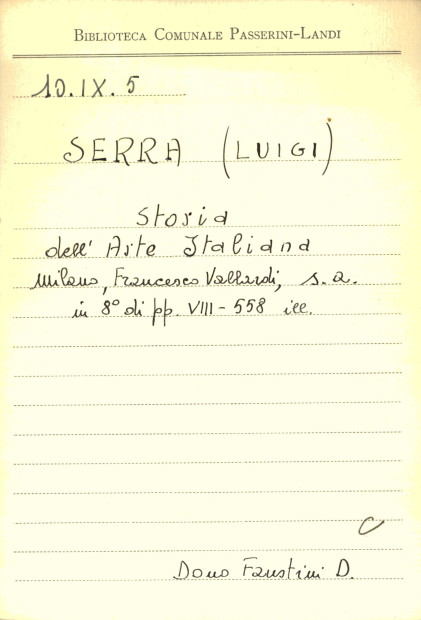 BIBLIOTECA COMUNALE PASSERINI-LANDI
10.IX.5
SERRA (LUIGI)
Storia
dell'Arte Italiana
Milano, Francesco Vallardi, s.a.
in 8° di pp. VIII-558 ill.
C
Dono Faustini D.